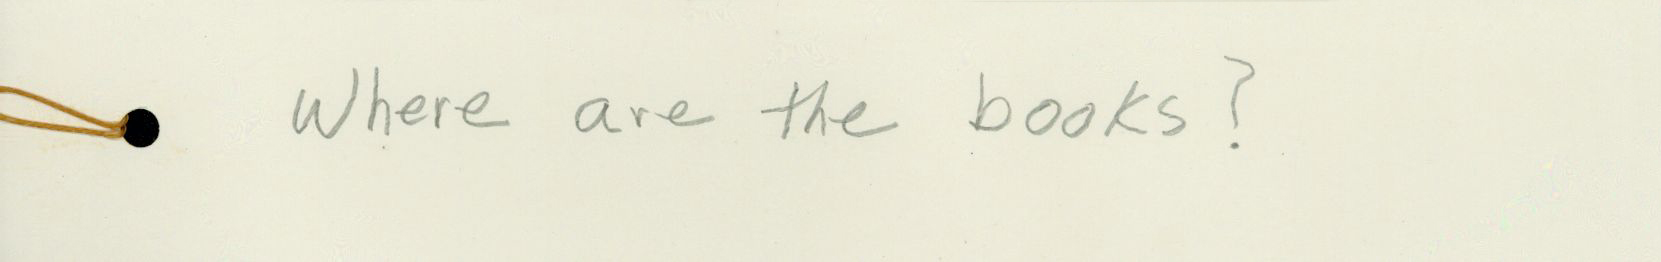 Where are the books?